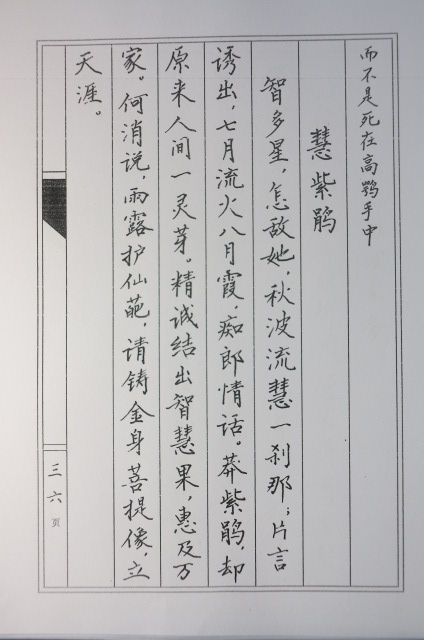 而不是死在高鹗手中
慧紫鹃
智多星，怎敌她，秋波流慧一刹那；片言
诱出，七月流火八月霞，痴郎情话。莽紫鹃，却
原来人间一灵芽。精诚结出智慧果，惠及万
家。何消说，雨露护仙葩，请铸金身菩提像，立
天涯。
三六页